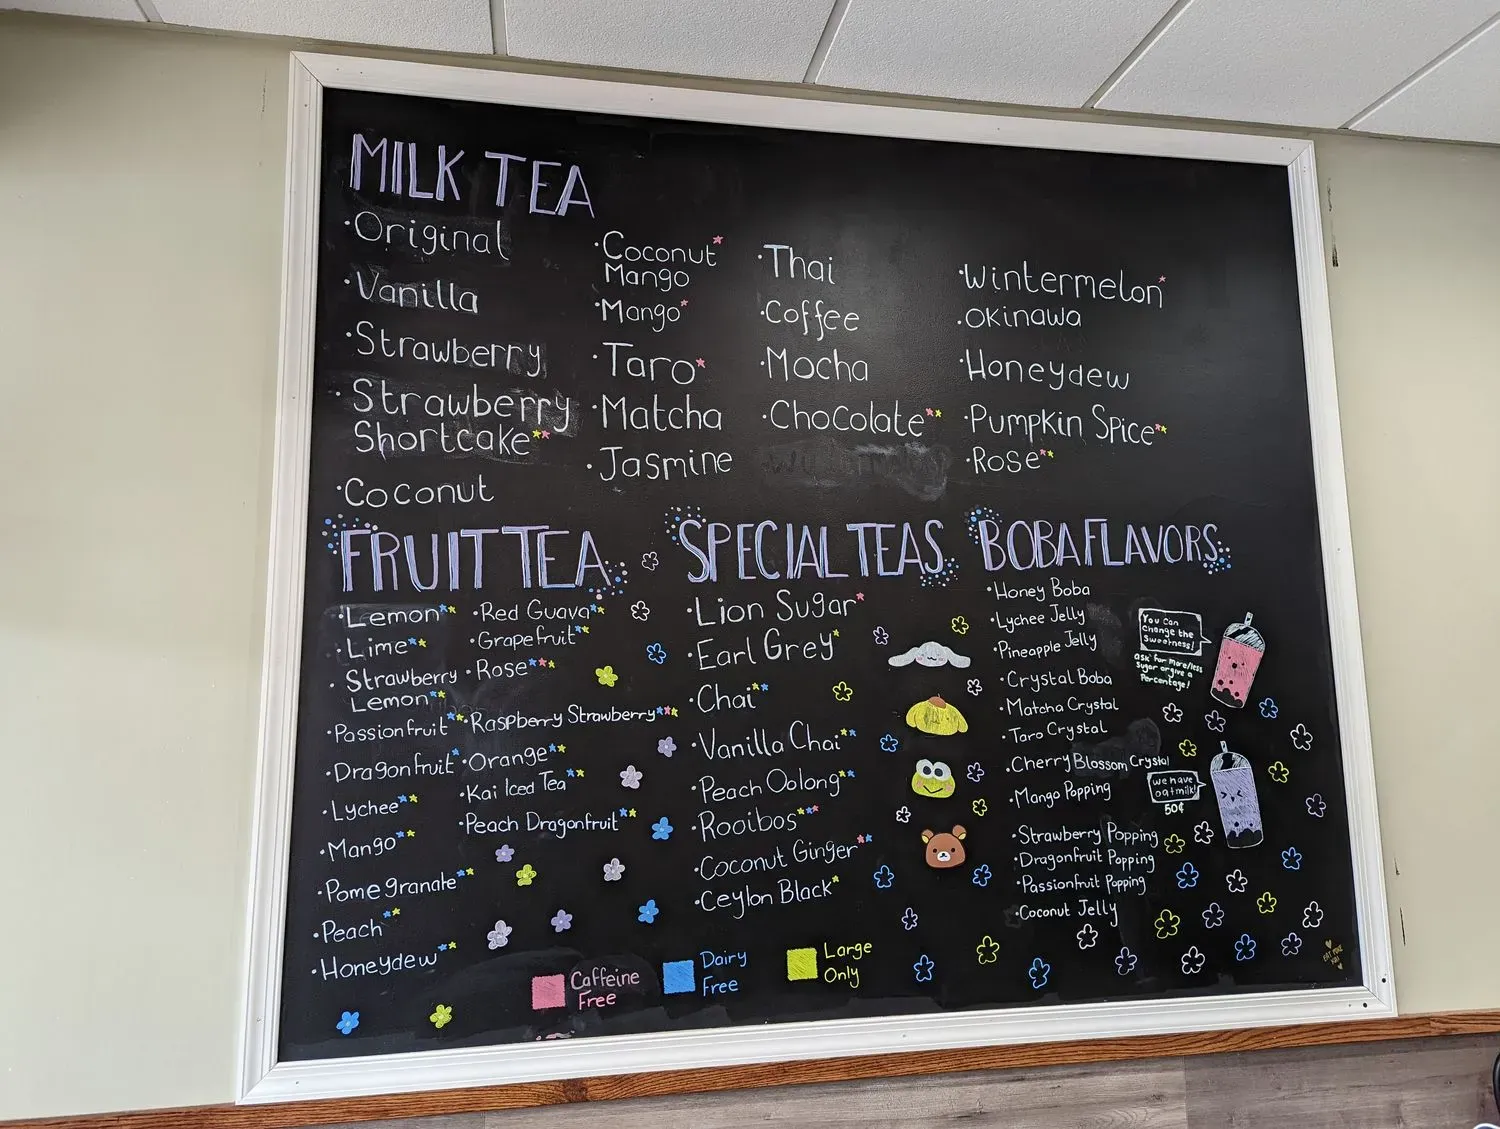 MILK TEA
·Original
·Vanilla
·Strawberry
·Strawberry
Shortcake
·Coconut
·Coconut
Mango
·Mango
·Taro
·Matcha
·Jasmine
·Thai
·Coffee
·Mocha
·Chocolate
·Wintermelon
·Okinawa
·Honeydew
·Pumpkin Spice
·Rose
FRUIT TEA
·Lemon
·Lime
·Strawberry
Lemon
·Passionfruit
·Dragonfruit
·Lychee
·Mango
·Pomegranate
·Peach
·Honeydew
·Red Guava
·Grapefruit
·Rose
·Raspberry Strawberry
·Orange
·Kai Iced Tea
·Peach Dragonfruit
SPECIAL TEAS
·Lion Sugar
·Earl Grey
·Chai
·Vanilla Chai
·Peach Oolong
·Rooibos
·Coconut Ginger
·Ceylon Black
BOBA FLAVORS
·Honey Boba
·Lychee Jelly
·Pineapple Jelly
·Crystal Boba
·Matcha Crystal
·Taro Crystal
·Cherry Blossom Crystal
·Mango Popping
·Strawberry Popping
·Dragonfruit Popping
·Passionfruit Popping
·Coconut Jelly
You can
change the
Sweetness!
ask for more/less
Sugar or give a
Percentage!
we have
oatmilk!
50¢
Caffeine
Free
Dairy
Free
Large
Only